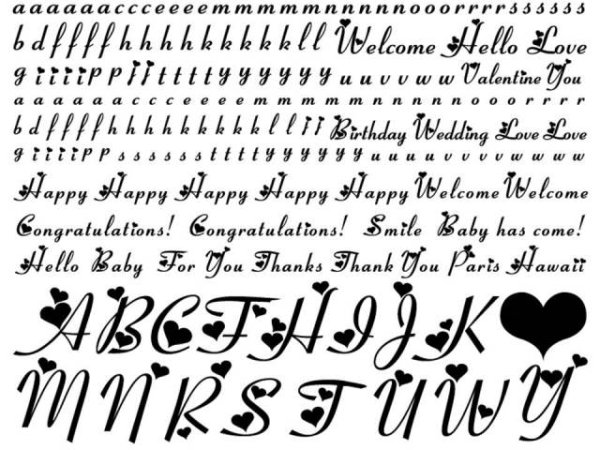 aaaaaaccceeeemmmmmnnnnnnooorrrrssssss
bdffffhhhhkkkkll Welcome Hello Love
giiiippiittttyyyyyyuuvvww Valentine You
aaaaaaccceeeemmmmmnnnnnnooorrrr
bdffffhhhhkkkkkllii Birthday Wedding Love Love
giiiippssssssttttyyyyyyuuuuvvvwwww
Happy Happy Happy Happy Happy Welcome Welcome
Congratulations! Congratulations! Smile Baby has come!
Hello Baby For You Thanks Thank You Paris Hawaii
ABCFHIJK
MNRSTUWY